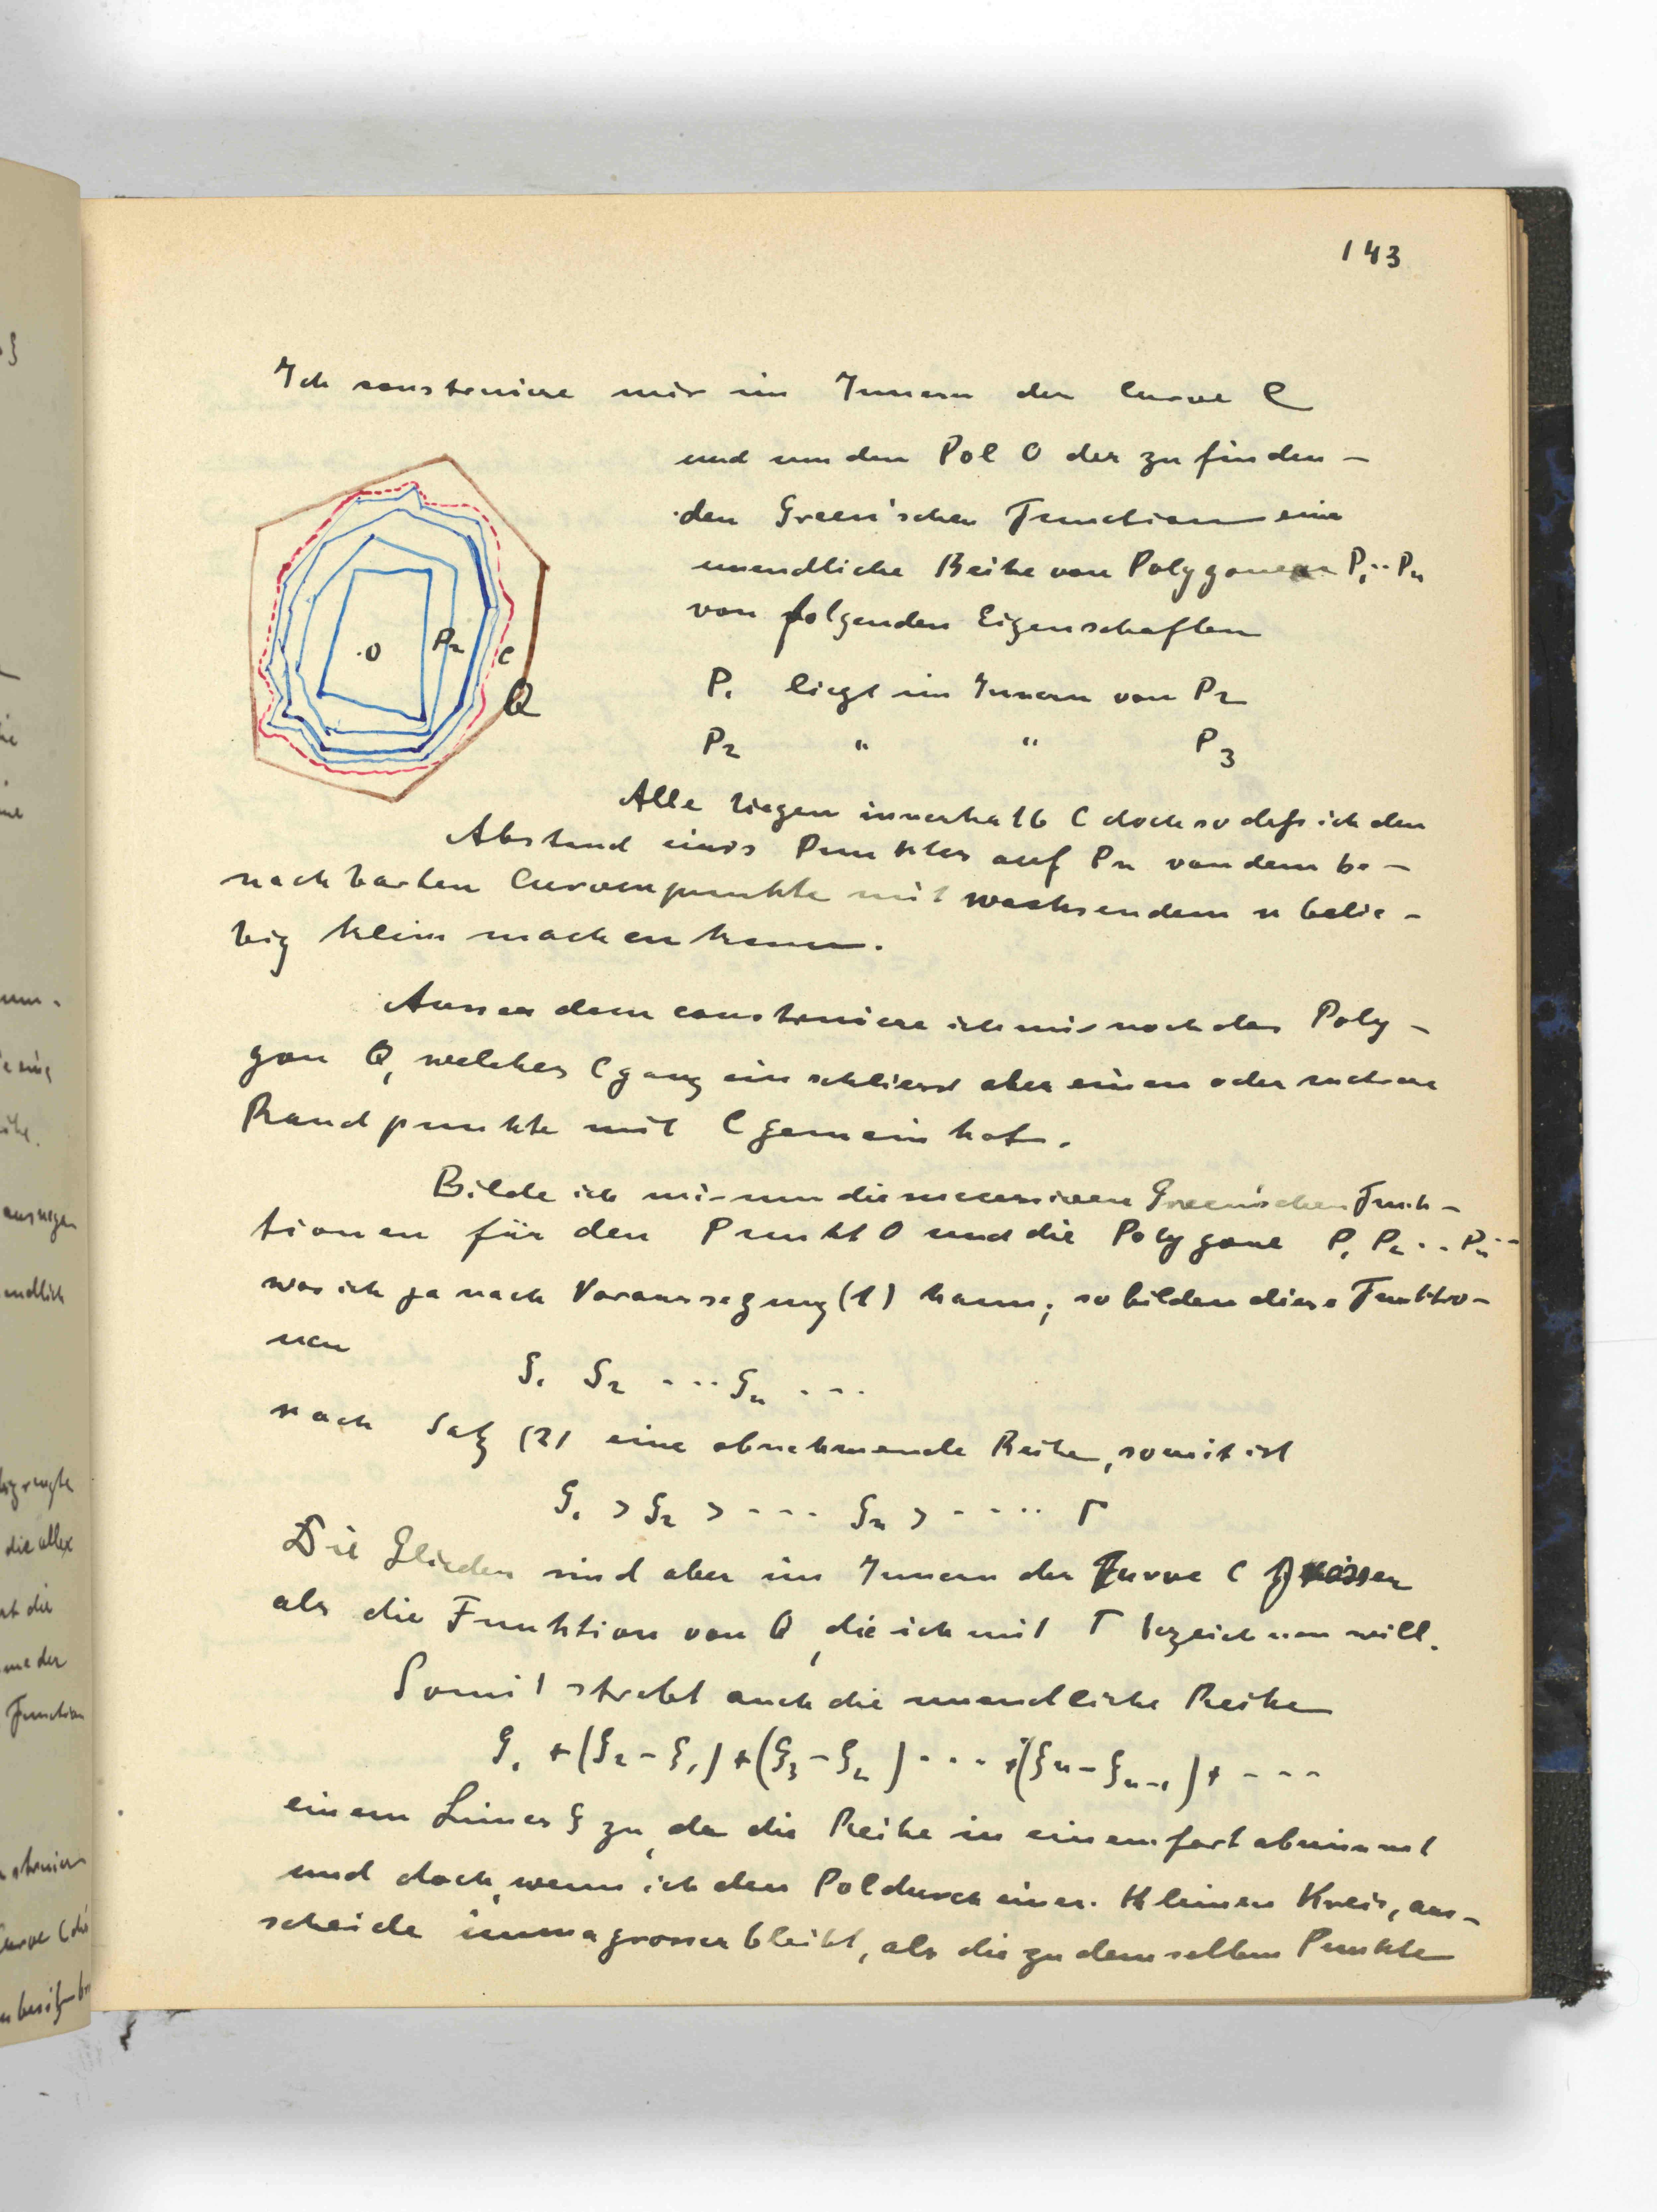 143
Ich construiere mir im Innern der Curve C
und um den Pol O der zu finden-
den Green'schen Function eine
unendliche Reihe von Polygonen P₁..Pn
von folgenden Eigenschaften
P₁ liegt im Innern von P₂
P₂ " " P₃
Alle liegen innerhalb C doch so dass ich den
Abstand eines Punktes auf Pn von dem be-
nachbarten Curvenpunkte mit wachsendem n belie-
big klein machen kann.
Ausser dem construiere ich mir noch das Poly-
gon Q, welches C ganz einschliesst aber einen oder mehrere
Randpunkte mit C gemein hat.
Bilde ich mir nun die successiven Green'schen Funk-
tionen für den Punkt O und die Polygone P₁ P₂ .. Pn ..
was ich ja nach Voraussezung (1) kann, so bilden diese Funktio-
nen
G₁ G₂ ... Gn ...
nach Satz (2) eine abnehmende Reihe, somit ist
G₁ > G₂ > --- Gn > ---- Γ
Die Glieder sind aber im Innern der Kurve C grösser
als die Funktion von Q, die ich mit Γ bezeichnen will.
Somit strebt auch die unendliche Reihe
G₁ + (G₂ - G₁) + (G₃ - G₂) ---- + (Gn - Gn-1) + ----
einem Limes G zu, da die Reihe in einem fort abnimmt
und doch, wenn ich den Pol durch einen kleinen Kreis, aus-
scheide immer grosser bleibt, als die zu demselben Punkte
O
P₂
C
Q